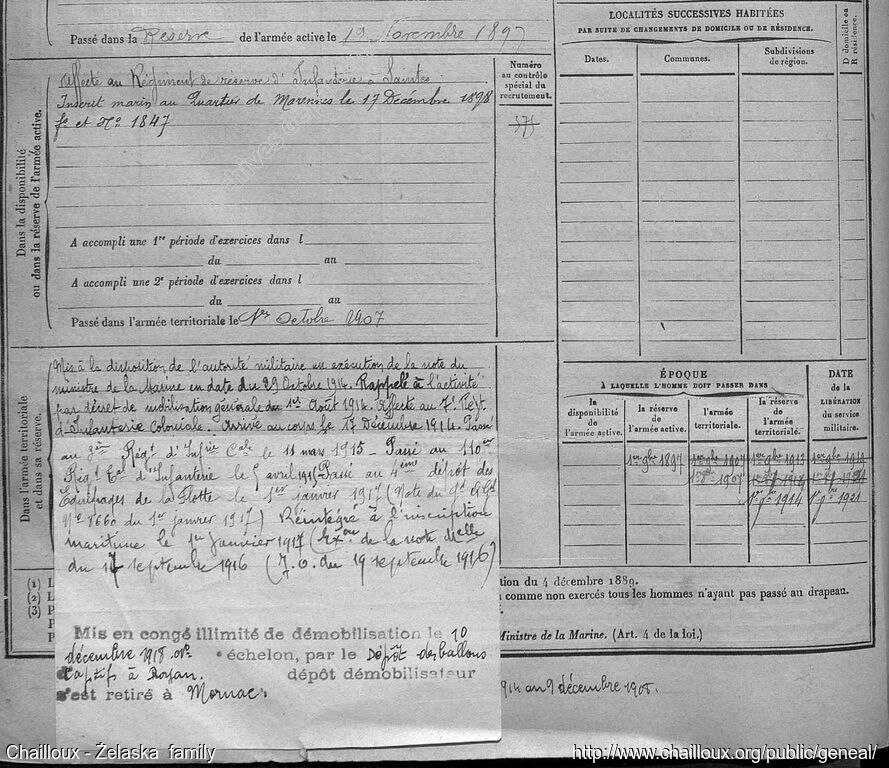 Passé dans la Réserve de l'armée active le 1er Novembre 1897
Dans la disponibilité
ou dans la réserve de l'armée active.
Affecté au Régiment de réserve d'Infanterie à Saintes
Inscrit marin au Quartier de Marennes le 17 Décembre 1898
fo et No 1847
Numéro
au contrôle
spécial du
recrutement.
575
A accompli une 1re période d'exercices dans l
du au
A accompli une 2e période d'exercices dans l
du au
Passé dans l'armée territoriale le 1er Octobre 1907
LOCALITÉS SUCCESSIVES HABITÉES
PAR SUITE DE CHANGEMENTS DE DOMICILE OU DE RÉSIDENCE.
Dates.
Communes.
Subdivisions
de région.
D domicile ou
R résidence.
Dans l'armée territoriale
et dans sa réserve.
Mis à la disposition de l'autorité militaire en exécution de la note du
ministre de la Marine en date du 29 Octobre 1914. Rappelé à l'activité
par décret de mobilisation générale du 1er Août 1914. Affecté au 7e Régt
d'Infanterie Coloniale. Arrivé au corps le 17 Décembre 1914. Passé
au Régt d'Infrie Cale le 11 mars 1915 - Passé au 110ème
Régt Eal d'Infanterie le 5 avril 1915 Passé au 4ème dépôt des
Equipages de la Flotte le 1er Janvier 1917 (Note du
No 8660 du 1er janvier 1917) Réintégré à l'inscription
maritime le 1er Janvier 1917 (Exon de la note Melle
du 17 septembre 1916 (J.O. du 19 septembre 1916)
ÉPOQUE
À LAQUELLE L'HOMME DOIT PASSER DANS
la
disponibilité
de
l'armée active.
la réserve
de
l'armée active.
l'armée
territoriale.
la réserve
de
l'armée
territoriale.
DATE
de la
LIBÉRATION
du service
militaire.
1er 9bre 1897 1er 9bre 1907 1er 9bre 1913 1er 9bre 1919
1er 8bre 1907
1er 8bre 1914 1er 8bre 1921
(1) L
(2) L
(3) P
P
P
tion du 4 décembre 1889.
comme non exercés tous les hommes n'ayant pas passé au drapeau.
Ministre de la Marine. (Art. 4 de la loi.)
Mis en congé illimité de démobilisation le 10
décembre 1918 échelon, par le Dépôt des ballons
captifs à Royan. dépôt démobilisateur
s'est retiré à Mornac
914 au 9 décembre 1918.
Chailloux - Żelaska family
http://www.chailloux.org/public/geneal/